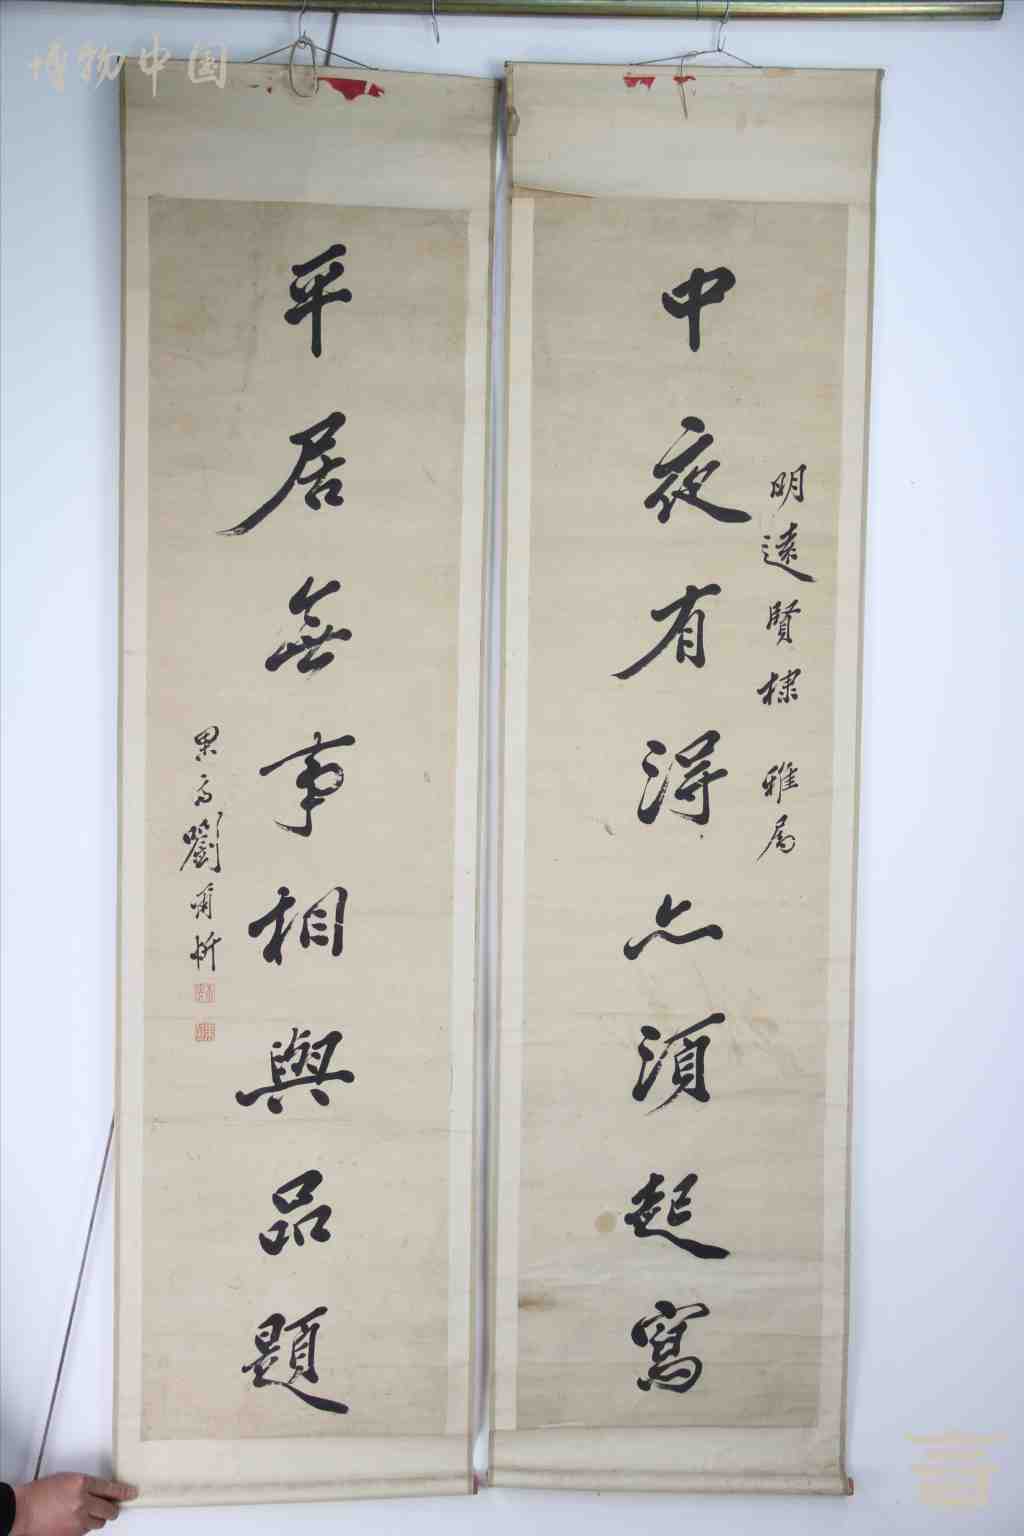 博物中国
明遠賢棣 雅屬
中夜有得亦須起寫
平居無事相與品題
劉